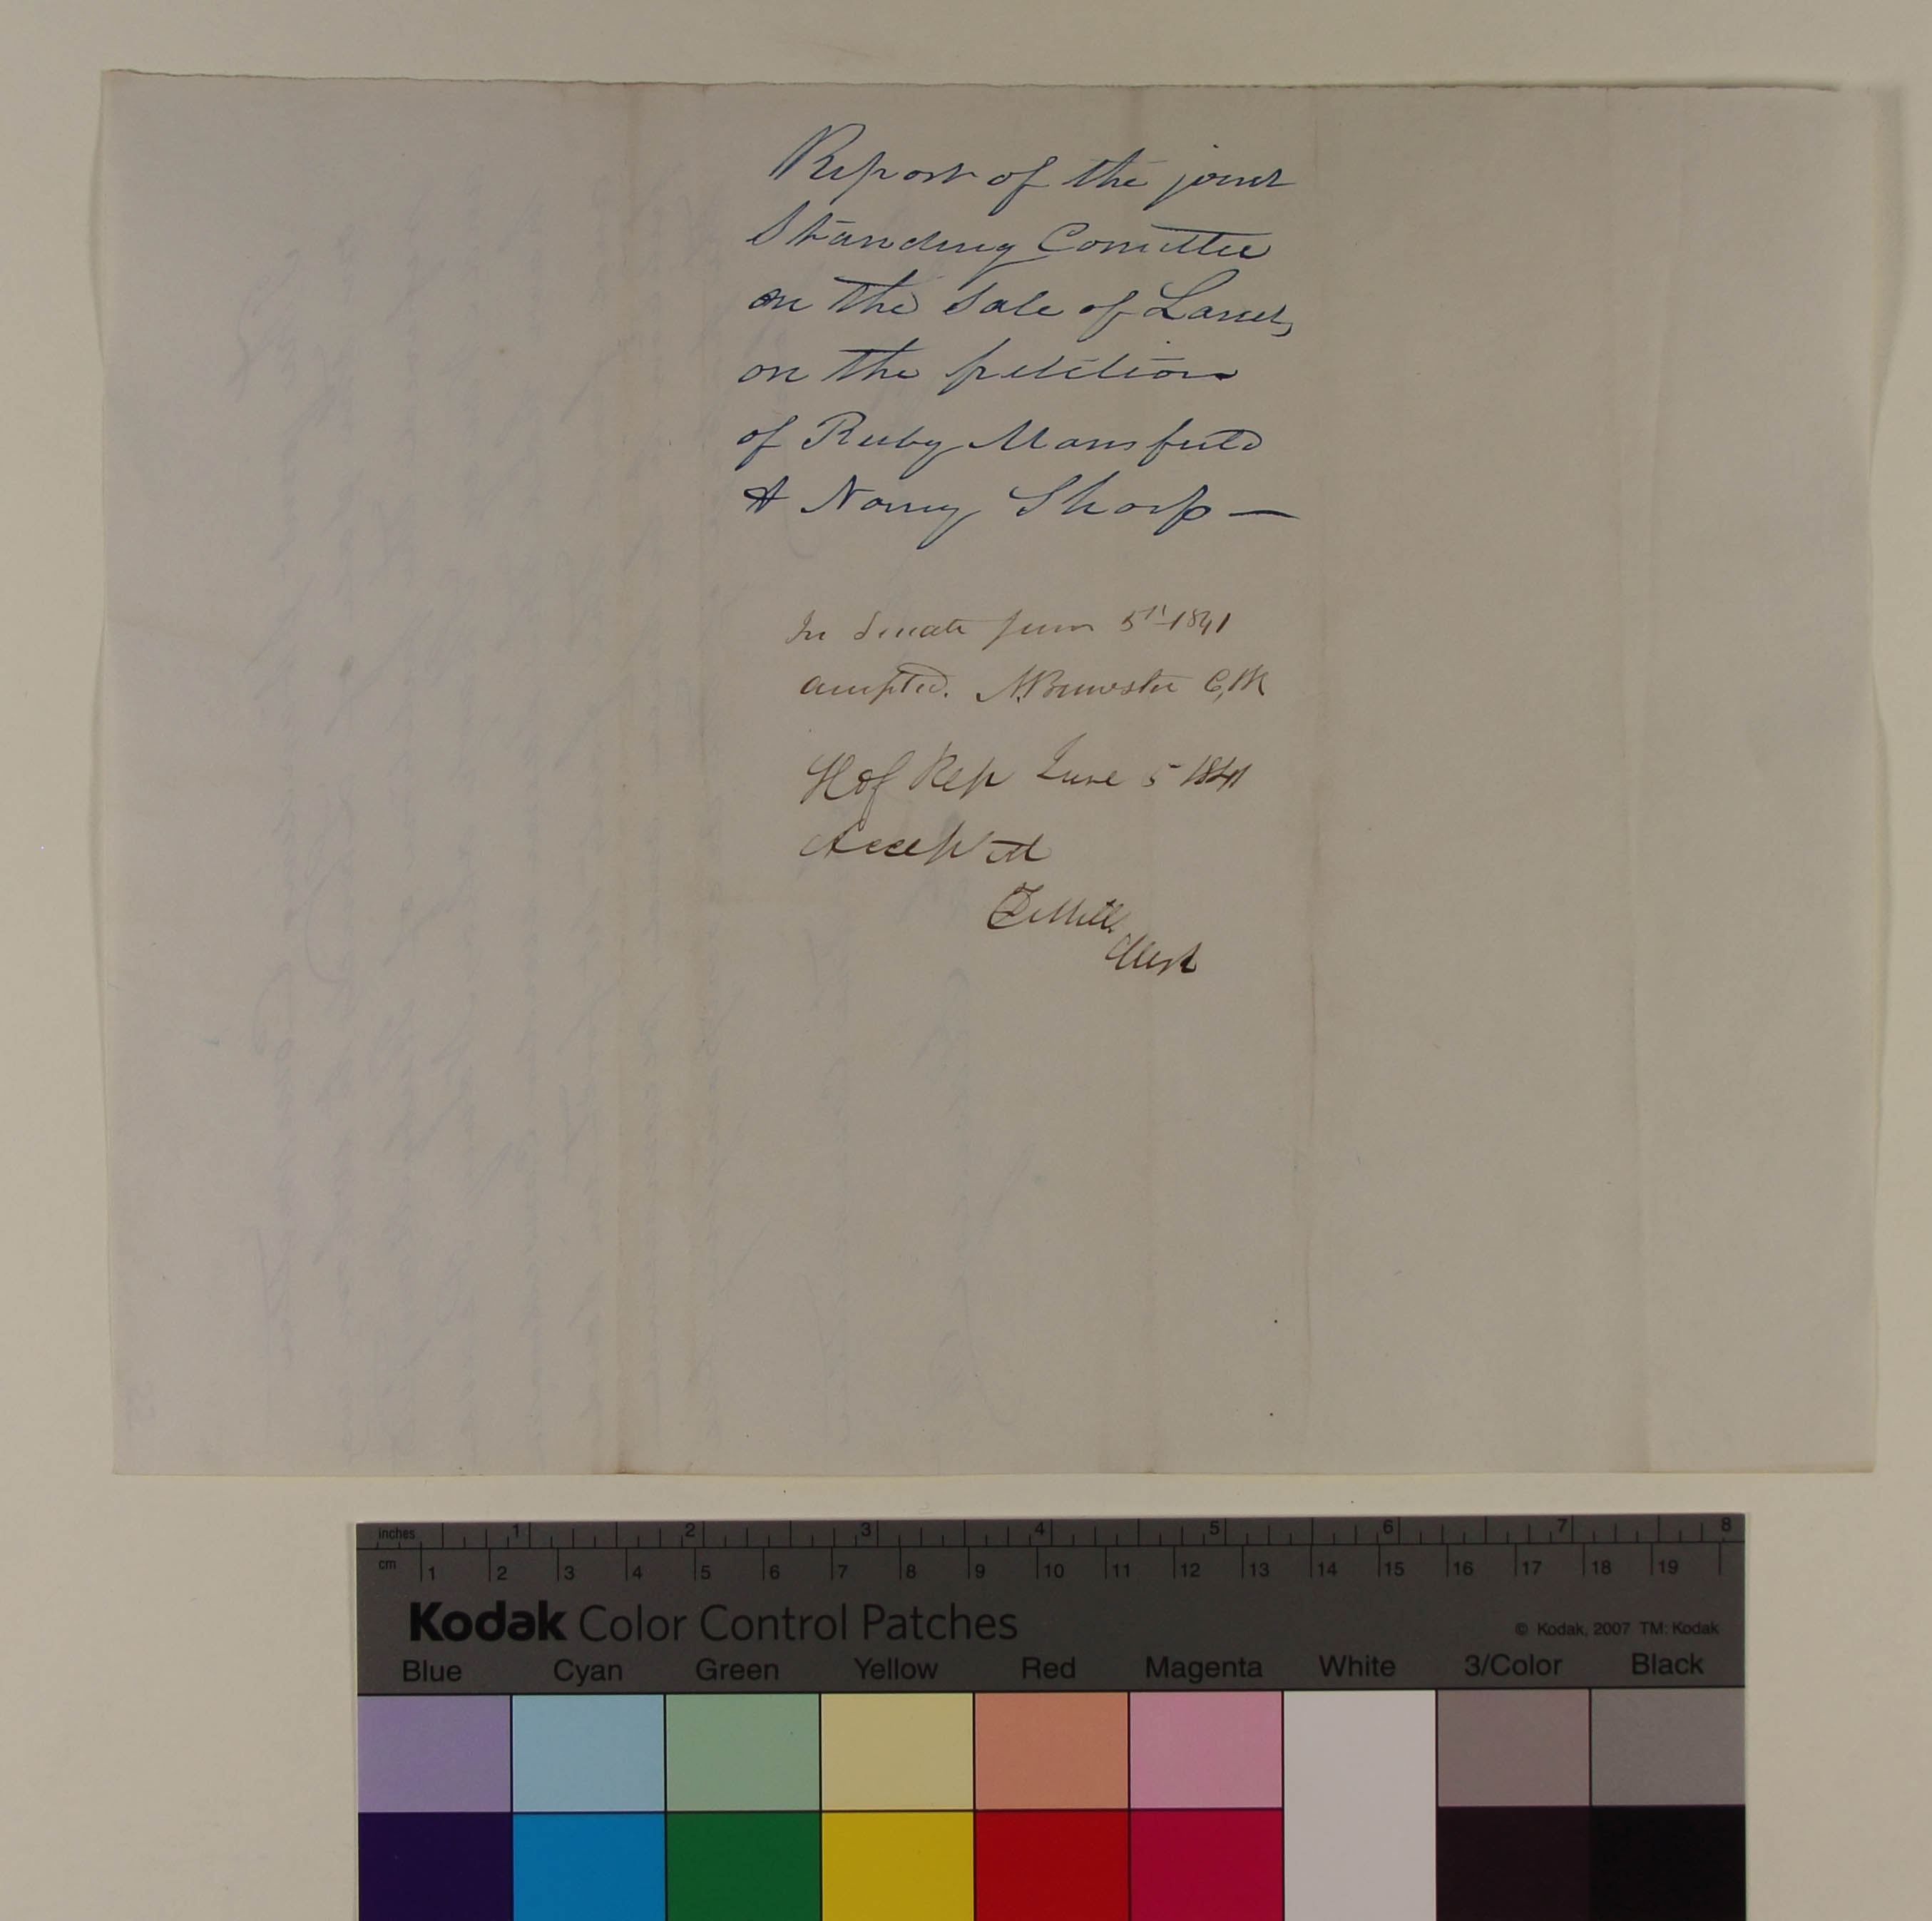 Report of the joint
Standing Comittee
on the Sale of Lands,
on the petition
of Ruby Mansfield
& Nancy Sharp —
In Senate June 5th 1841
accepted. N. Brewster Clk
H of Rep June 5 1841
Accepted
Clerk
inches 1 2 3 4 5 6 7 8
cm 1 2 3 4 5 6 7 8 9 10 11 12 13 14 15 16 17 18 19
Kodak Color Control Patches
© Kodak, 2007 TM: Kodak
Blue Cyan Green Yellow Red Magenta White 3/Color Black